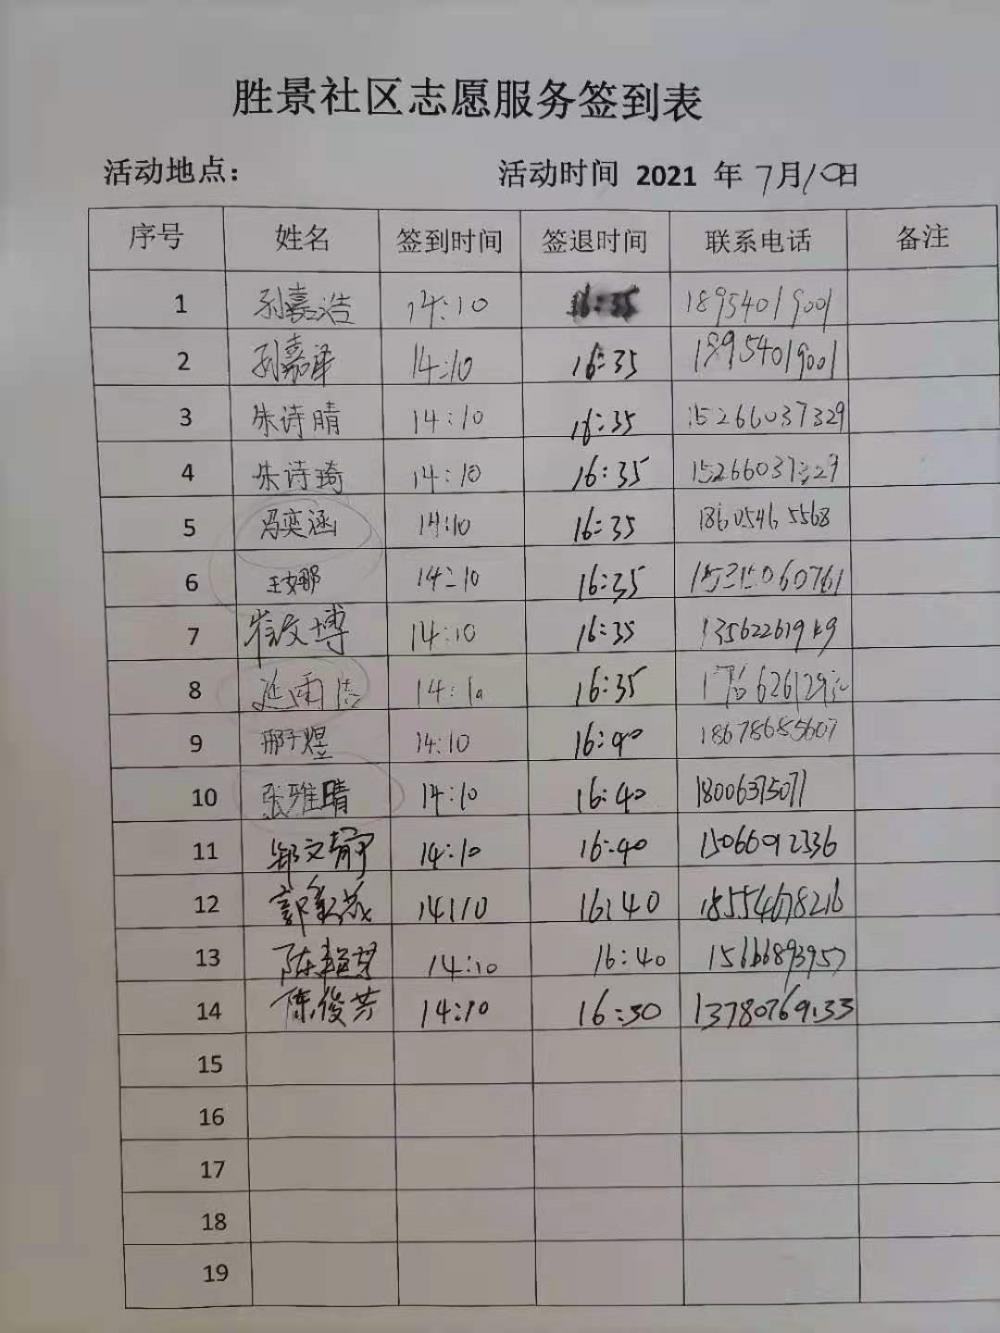 胜景社区志愿服务签到表
活动地点： 活动时间 2021 年 7月10日
序号 姓名 签到时间 签退时间 联系电话 备注
1 孙嘉浩 14:10 16:35 18954019001
2 孙嘉泽 14:10 16:35 18954019001
3 朱诗晴 14:10 16:35 15266037329
4 朱诗琦 14:10 16:35 15266037329
5 冯奕涵 14:10 16:35 18605465568
6 王女那 14:10 16:35 15315060761
7 崔文博 14:10 16:35
8 14:10 16:35
9 邢于煜 14:10 16:40 18678685607
10 张雅晴 14:10 16:40 18006375071
11 郑文静 14:10 16:40 15066012336
12 郭 14:10 16:40 18554678216
13 陈 14:10 16:40 15666893957
14 陈俊芳 14:10 16:50 13780769133
15
16
17
18
19